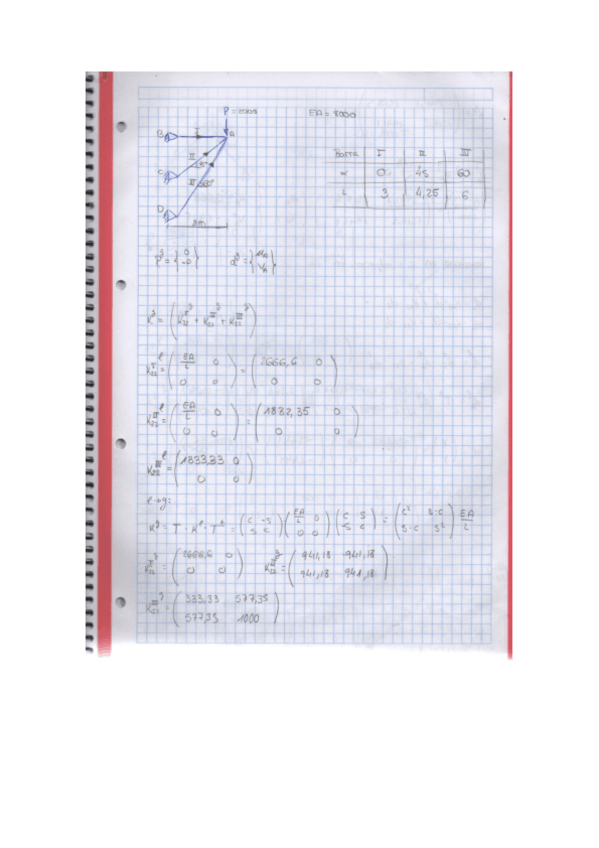 P = 2000 EA = 8000
B I A
C II 45°
D III 60°
3m
Barra I II III
α 0 45 60
L 3 4,25 6
P^g = { 0 -P } d^g = { u_A v_A }
K^g = ( K_22^I g + K_22^II g + K_22^III g )
K_22^I l = ( EA/L 0 0 0 ) = ( 2666,6 0 0 0 )
K_22^II l = ( EA/L 0 0 0 ) = ( 1882,35 0 0 0 )
K_22^III l = ( 1333,33 0 0 0 )
l→g:
K^g = T · K^l · T^t = ( c -s s c ) ( EA/L 0 0 0 ) ( c s -s c ) = ( c² s·c s·c s² ) EA/L
K_22^I g = ( 2666,6 0 0 0 ) K_22^II g = ( 941,18 941,18 941,18 941,18 )
K_22^III g = ( 333,33 577,35 577,35 1000 )